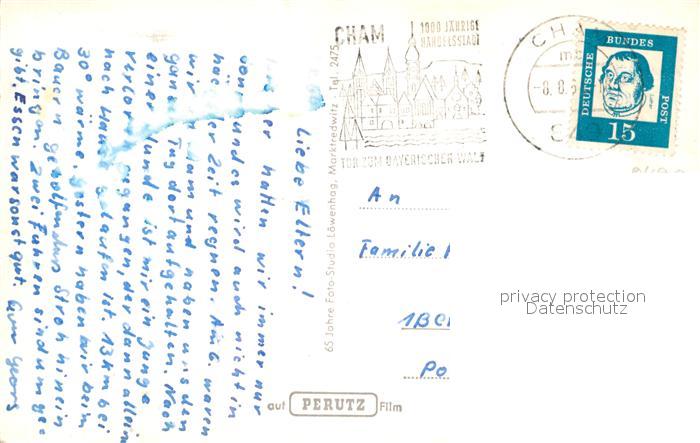 CHAM
1000 JÄHRIGE
HANDELSSTADT
TOR ZUM BAYERISCHER WALD
CHAM
-8.8.
DEUTSCHE BUNDESPOST
15
Liebe Eltern!
hatten wir immer nur
und es wird auch nicht in
nächster Zeit regnen. Am 6. waren
wir in Cham und haben uns den
ganzen Tag dort aufgehalten. Nach
einer Stunde ist mir ein Junge
verloren gegangen, der dann allein
nach gelaufen ist. 13 km bei
30° wärme. gestern haben wir beim
Bauern geholfen das Stroh hinein
bringen. Zwei Fuhren sind umge=
gibt. Essen war sonst gut. Euer Georg
65 Jahre Foto-Studio Löwenhag, Marktredwitz Tel. 2475
An
Familie
1 BE
Po
auf PERUTZ Film
privacy protection
Datenschutz